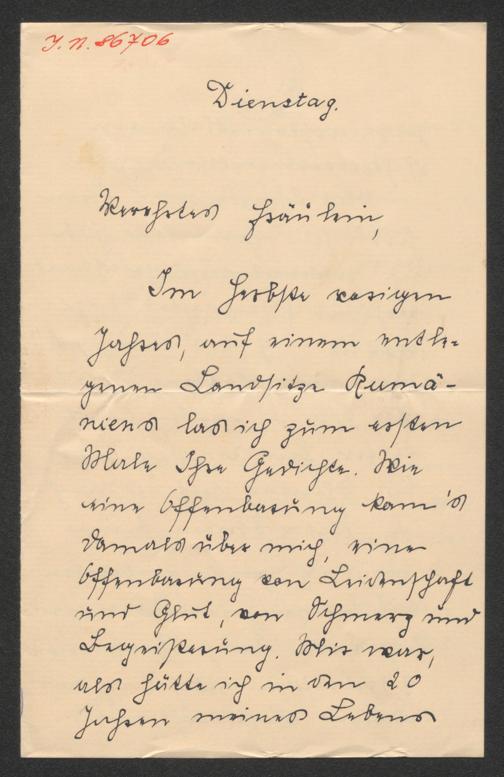 J. N. 86706
Dienstag.
Verehrtes Fräulein,
Im Herbste vorigen
Jahres, auf einem entle-
genen Landsitze Rumä-
niens las ich zum ersten
Male Ihre Gedichte. Wie
eine Offenbarung kam's
damals über mich, eine
Offenbarung von Leidenschaft
und Glut, von Schmerz und
Begeisterung. Mir war,
als hätte ich in den 20
Jahren meines Lebens